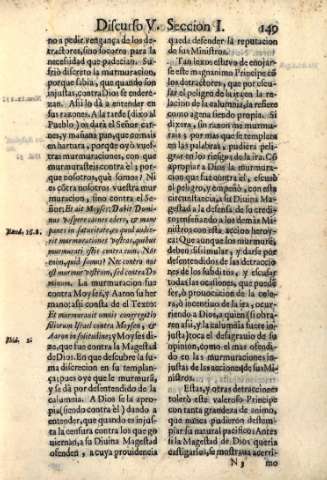 Discurso V. Seccion I. 149
no a pedir vengança de los de-
tractores, sino socorro para la
necesidad que padecian. Su-
frió discreto la murmuracion,
porque sabia, que quando son
injustas, contra Dios se endere-
zan. Assi lo dá a entender en
sus razones. A la tarde (dixo al
Pueblo) on dará el Señor car-
nes, y mañana pan, que comais
en hartura, porque oyò vues-
tras murmuraciones, con que
murmurasteis contra èl: por-
que nosotros, què somos? Ni
es cõtra nosotros vuestra mur
muracion, sino contra el Se-
ñor. Et ait Moyses: Dabit Domi-
nus vespere carnes edere, & mane
panes in saturitate, eo quod audie-
rit murmurationes vestras, quibus
murmurati estis contra eum. Nos
enim, quid sumus? Nec contra nos
est murmur vestrum, sed contra Do-
minum. La murmuracion fue
contra Moyses, y Aaron su her
mano; assi consta de el Texto:
Et murmuravit omnis congregatio
filiorum Israel contra Moysen, &
Aaron in solitudine; y Moyses di-
ze, que fue contra la Magestad
de Dios. En que descubre la su-
ma discrecion en su templan-
ça; pues oye que le murmurã,
y se dá por desentendido de la
calumnia. A Dios se la apro-
pia (siendo contra èl) dando a
entender, que quando es injus-
ta la censura contra los que go
viernan, a su Divina Magestad
ofenden, a cuya providencia
Exod. 16.8.
Ibid. 2.
queda defender la reputacion
de sus Ministros.
Tan lexos estuvo de enojar-
se este magnanimo Principe cõ
los detractores, que por escu-
sar el peligro de la ira en la re-
lacion de la calumnia, la refiere
como agena siendo propia. Si
dixera, sin razon me murmu-
rais; por mas que se templara
en las palabras, pudiera peli-
grar en los riesgos de la ira. Cõ
apropiar a Dios la murmura-
cion que fue contra èl, escusò
el peligro, y empeñò, con esta
circunstancia, a su Divina Ma-
gestad a la defensa de su credi-
to; enseñando a los demás Mi-
nistros con esta accion heroy-
ca: Que aunque los murmurẽ,
deben dissimular, y darse por
desentendidos de la detraccion
de los subditos, y escusar
todas las ocasiones, que puede
ser, ò provocacion de la colera,
ò incentivos de la ira, ocur-
riendo a Dios, a quien (si obra-
ren assi, y la calumnia fuere in-
justa) toca el desagravio de su
opinion, como el ofendido
en las murmuraciones injus-
tas de las acciones de sus Mi-
nistros.
Estas, y otras detracciones
tolerò este valeroso Principe
con tanta grandeza de animo,
que nunca pudieron desapho-
rar su natural pacifico: Antes
si la Magestad de Dios queria
castigarlas, se mostrava acerri-
N 3 mo